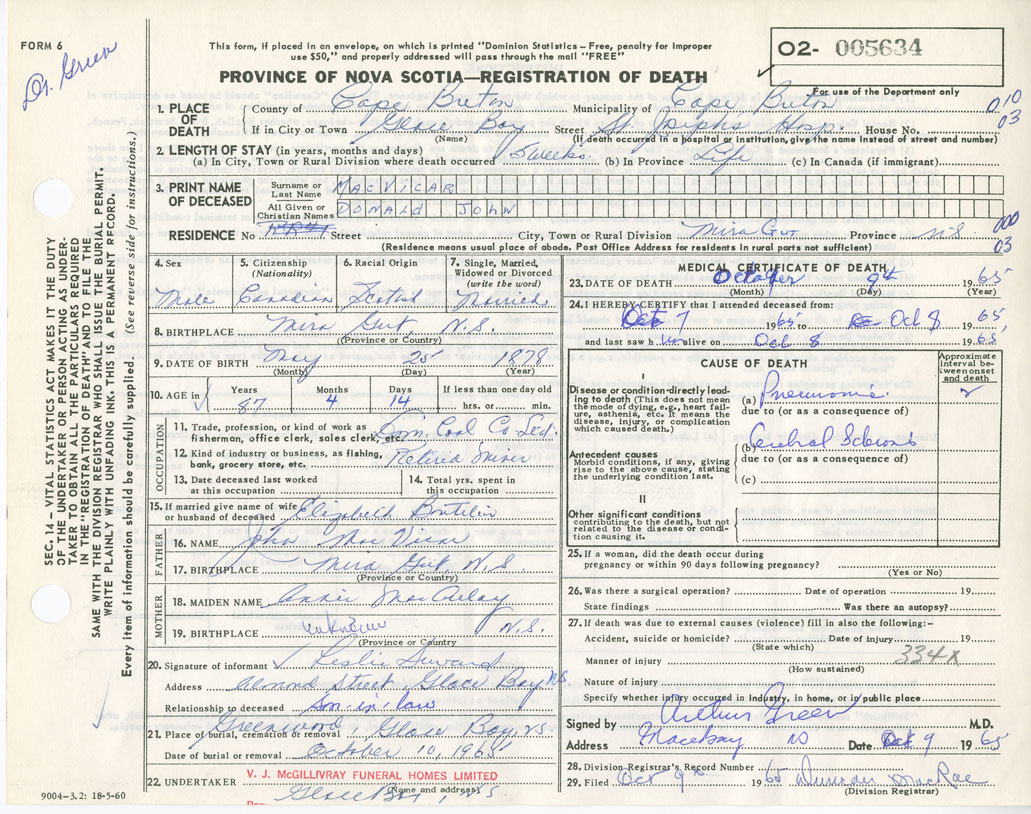 FORM 6
Dr. Green
This form, if placed in an envelope, on which is printed "Dominion Statistics – Free, penalty for improper
use $50," and properly addressed will pass through the mail "FREE"
PROVINCE OF NOVA SCOTIA—REGISTRATION OF DEATH
O2- 005634
For use of the Department only
010
03
1. PLACE OF DEATH
County of Cape Breton Municipality of Cape Breton
If in City or Town Glace Bay Street St. Joseph's Hosp. House No.
(Name) (If death occurred in a hospital or institution, give the name instead of street and number)
2. LENGTH OF STAY (in years, months and days)
(a) In City, Town or Rural Division where death occurred 5 weeks (b) In Province Life (c) In Canada (if immigrant)
3. PRINT NAME OF DECEASED
Surname or Last Name MACVICAR
All Given or Christian Names DONALD JOHN
000
03
RESIDENCE No Street City, Town or Rural Division Mira Gut Province N.S
(Residence means usual place of abode. Post Office Address for residents in rural parts not sufficient)
4. Sex 5. Citizenship (Nationality) 6. Racial Origin 7. Single, Married, Widowed or Divorced (write the word)
Male Canadian Scotish Married
8. BIRTHPLACE Mira Gut, N.S.
(Province or Country)
9. DATE OF BIRTH May 25 1878
(Month) (Day) (Year)
10. AGE in Years Months Days If less than one day old
87 4 14 hrs. or min.
OCCUPATION
11. Trade, profession, or kind of work as
fisherman, office clerk, sales clerk, etc. Dom. Coal Co Ltd.
12. Kind of industry or business, as fishing,
bank, grocery store, etc. Retired Miner
13. Date deceased last worked
at this occupation
14. Total yrs. spent in
this occupation
15. If married give name of wife
or husband of deceased Elizabeth Boutelier
FATHER
16. NAME John Mac Vicar
17. BIRTHPLACE Mira Gut N.S.
(Province or Country)
MOTHER
18. MAIDEN NAME Annie MacAulay
19. BIRTHPLACE unknown N.S.
(Province or Country)
20. Signature of informant Leslie
Address Almond Street, Glace Bay N.S.
Relationship to deceased son-in-law
21. Place of burial, cremation or removal Greenwood, Glace Bay, N.S.
Date of burial or removal October 10, 1965
22. UNDERTAKER V. J. McGILLIVRAY FUNERAL HOMES LIMITED
Glace Bay, N.S.
(Name and address)
MEDICAL CERTIFICATE OF DEATH
23. DATE OF DEATH October 9th 1965
(Month) (Day) (Year)
24. I HEREBY CERTIFY that I attended deceased from:
Oct 7 1965 to Oct 8 1965
and last saw him alive on Oct 8 1965
CAUSE OF DEATH
Approximate interval between onset and death
I
Disease or condition directly leading to death (This does not mean the mode of dying, e.g., heart failure, asthenia, etc. It means the disease, injury, or complication which caused death.)
(a) Pneumonia 2
due to (or as a consequence of)
(b) Cerebral Sclerosis
due to (or as a consequence of)
Antecedent causes
Morbid conditions, if any, giving rise to the above cause, stating the underlying condition last.
(c)
II
Other significant conditions
contributing to the death, but not related to the disease or condition causing it.
25. If a woman, did the death occur during
pregnancy or within 90 days following pregnancy?
(Yes or No)
26. Was there a surgical operation? Date of operation 19
State findings Was there an autopsy?
27. If death was due to external causes (violence) fill in also the following:–
Accident, suicide or homicide? Date of injury 19
(State which)
Manner of injury 334X
(How sustained)
Nature of injury
Specify whether injury occurred in industry, in home, or in public place
Signed by Arthur Green M.D.
Address Glace Bay NS Date Oct 9 1965
28. Division Registrar's Record Number
29. Filed Oct 9th 1965 Duncan MacRae
(Division Registrar)
SEC. 14 – VITAL STATISTICS ACT MAKES IT THE DUTY
OF THE UNDERTAKER OR PERSON ACTING AS UNDER-
TAKER TO OBTAIN ALL THE PARTICULARS REQUIRED
IN THE "REGISTRATION OF DEATH" AND TO FILE THE
SAME WITH THE DIVISION REGISTRAR WHO SHALL ISSUE THE BURIAL PERMIT.
WRITE PLAINLY WITH UNFADING INK. THIS IS A PERMANENT RECORD.
Every item of information should be carefully supplied. (See reverse side for instructions.)
9004–3.2: 18-5-60